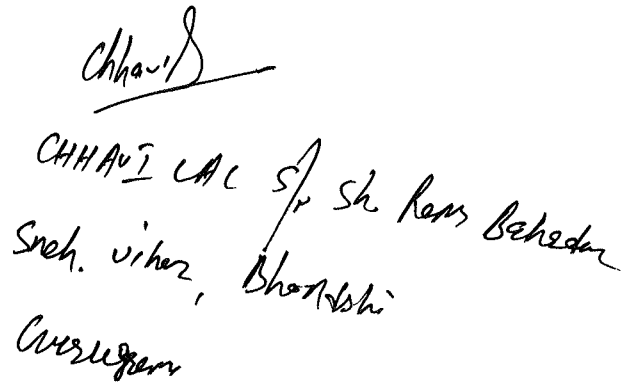 Chhavi
CHHAVI LAL S/o Sh. Ram Bahadur
Sneh. vihar, Bhondshi
Gurugram